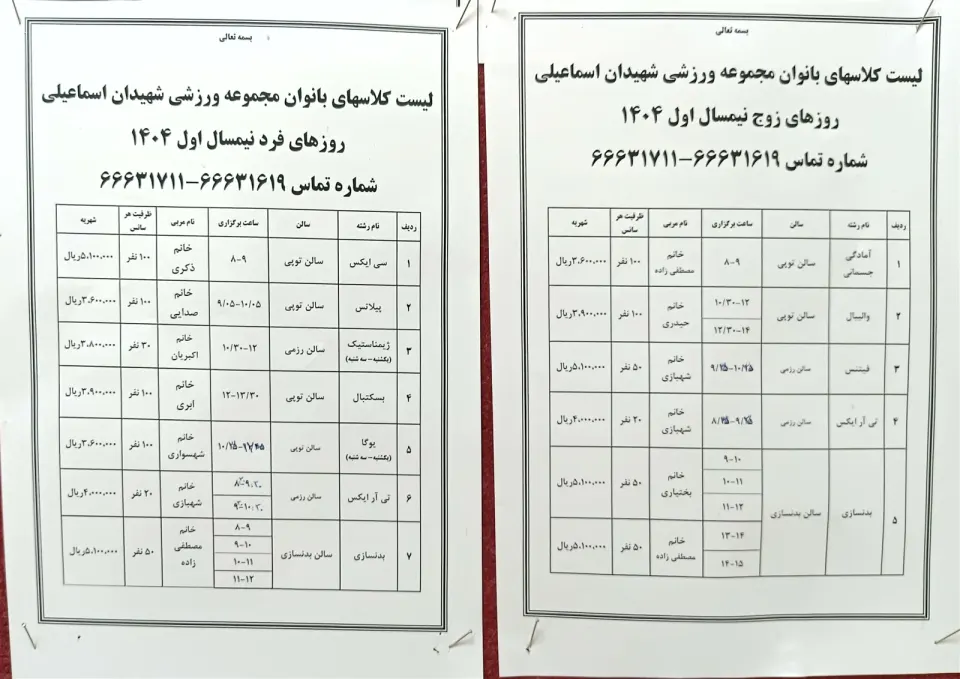 بسمه تعالی
لیست کلاسهای بانوان مجموعه ورزشی شهیدان اسماعیلی
روزهای زوج نیمسال اول ۱۴۰۴
شماره تماس ۶۶۶۳۱۶۱۹-۶۶۶۳۱۷۱۱
ردیف نام رشته سالن ساعت برگزاری نام مربی ظرفیت هر سانس شهریه
۱ آمادگی جسمانی سالن توپی ۸-۹ خانم مصطفی زاده ۱۰۰ نفر ۳،۶۰۰،۰۰۰ریال
۲ والیبال سالن توپی ۱۰/۳۰-۱۲ خانم حیدری ۱۰۰ نفر ۳،۹۰۰،۰۰۰ریال
۱۲/۳۰-۱۴
۳ فیتنس سالن رزمی خانم شهبازی ۵۰ نفر ۵،۱۰۰،۰۰۰ریال
۴ تی آر ایکس سالن رزمی خانم شهبازی ۲۰ نفر ۴،۰۰۰،۰۰۰ریال
۵ بدنسازی سالن بدنسازی ۹-۱۰ خانم بختیاری ۵۰ نفر ۵،۱۰۰،۰۰۰ریال
۱۰-۱۱
۱۱-۱۲
۱۳-۱۴ خانم مصطفی زاده ۵۰ نفر ۵،۱۰۰،۰۰۰ریال
۱۴-۱۵
بسمه تعالی
لیست کلاسهای بانوان مجموعه ورزشی شهیدان اسماعیلی
روزهای فرد نیمسال اول ۱۴۰۴
شماره تماس ۶۶۶۳۱۶۱۹-۶۶۶۳۱۷۱۱
ردیف نام رشته سالن ساعت برگزاری نام مربی ظرفیت هر سانس شهریه
۱ سی ایکس سالن توپی ۸-۹ خانم ذکری ۱۰۰ نفر ۵،۱۰۰،۰۰۰ریال
۲ پیلاتس سالن توپی ۹/۰۵-۱۰/۰۵ خانم صدایی ۱۰۰ نفر ۳،۶۰۰،۰۰۰ریال
۳ ژیمناستیک (یکشنبه – سه شنبه) سالن رزمی ۱۰/۳۰-۱۲ خانم اکبریان ۳۰ نفر ۳،۸۰۰،۰۰۰ریال
۴ بسکتبال سالن توپی ۱۲-۱۳/۳۰ خانم ابری ۱۰۰ نفر ۳،۹۰۰،۰۰۰ریال
۵ یوگا (یکشنبه – سه شنبه) سالن توپی خانم شهسواری ۱۰۰ نفر ۳،۶۰۰،۰۰۰ریال
۶ تی آر ایکس سالن رزمی خانم شهبازی ۲۰ نفر ۴،۰۰۰،۰۰۰ریال
۷ بدنسازی سالن بدنسازی ۸-۹ خانم مصطفی زاده ۵۰ نفر ۵،۱۰۰،۰۰۰ریال
۹-۱۰
۱۰-۱۱
۱۱-۱۲